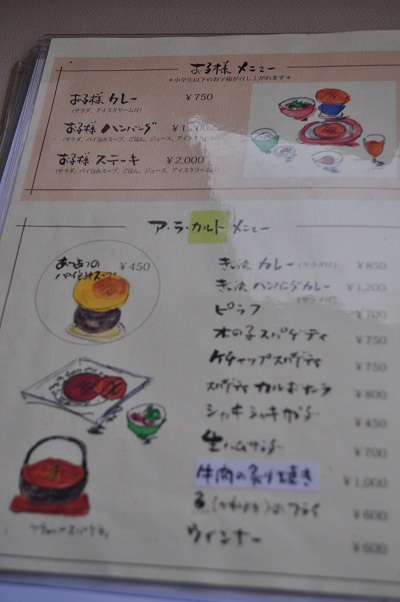 お子様 メニュー
＊小学生以下のお子様が召し上がれます＊
お子様 カレー ￥750
(サラダ、アイスクリーム付)
お子様 ハンバーグ ￥1,200
(サラダ、パイ包みスープ、ごはん、ジュース、アイスクリーム付)
お子様 ステーキ ￥2,000
(サラダ、パイ包みスープ、ごはん、ジュース、アイスクリーム付)
ア・ラ・カルト メニュー
あつあつの
パイ包みスープ ￥450
カレー(サラダ付) ￥850
ハンバーグカレー ￥1,200
(サラダ付)
ピラフ ￥700
木の子スパゲティ ￥750
ケチャップスパゲティ ￥750
スパゲティ カルボナーラ ￥800
シャキシャキサラダ ￥450
生ハムサラダ ￥700
牛肉の炙り焼き ￥1,000
のフライ ￥600
ウインナー ￥600